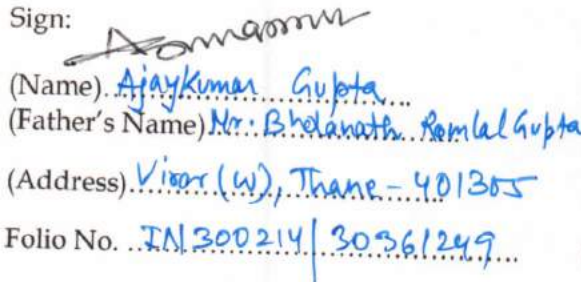 Sign:
(Name) Ajaykumar Gupta
(Father's Name) Mr. Bholanath Ramlal Gupta
(Address) Virar (W), Thane - 401305
Folio No. IN300214 | 30361249